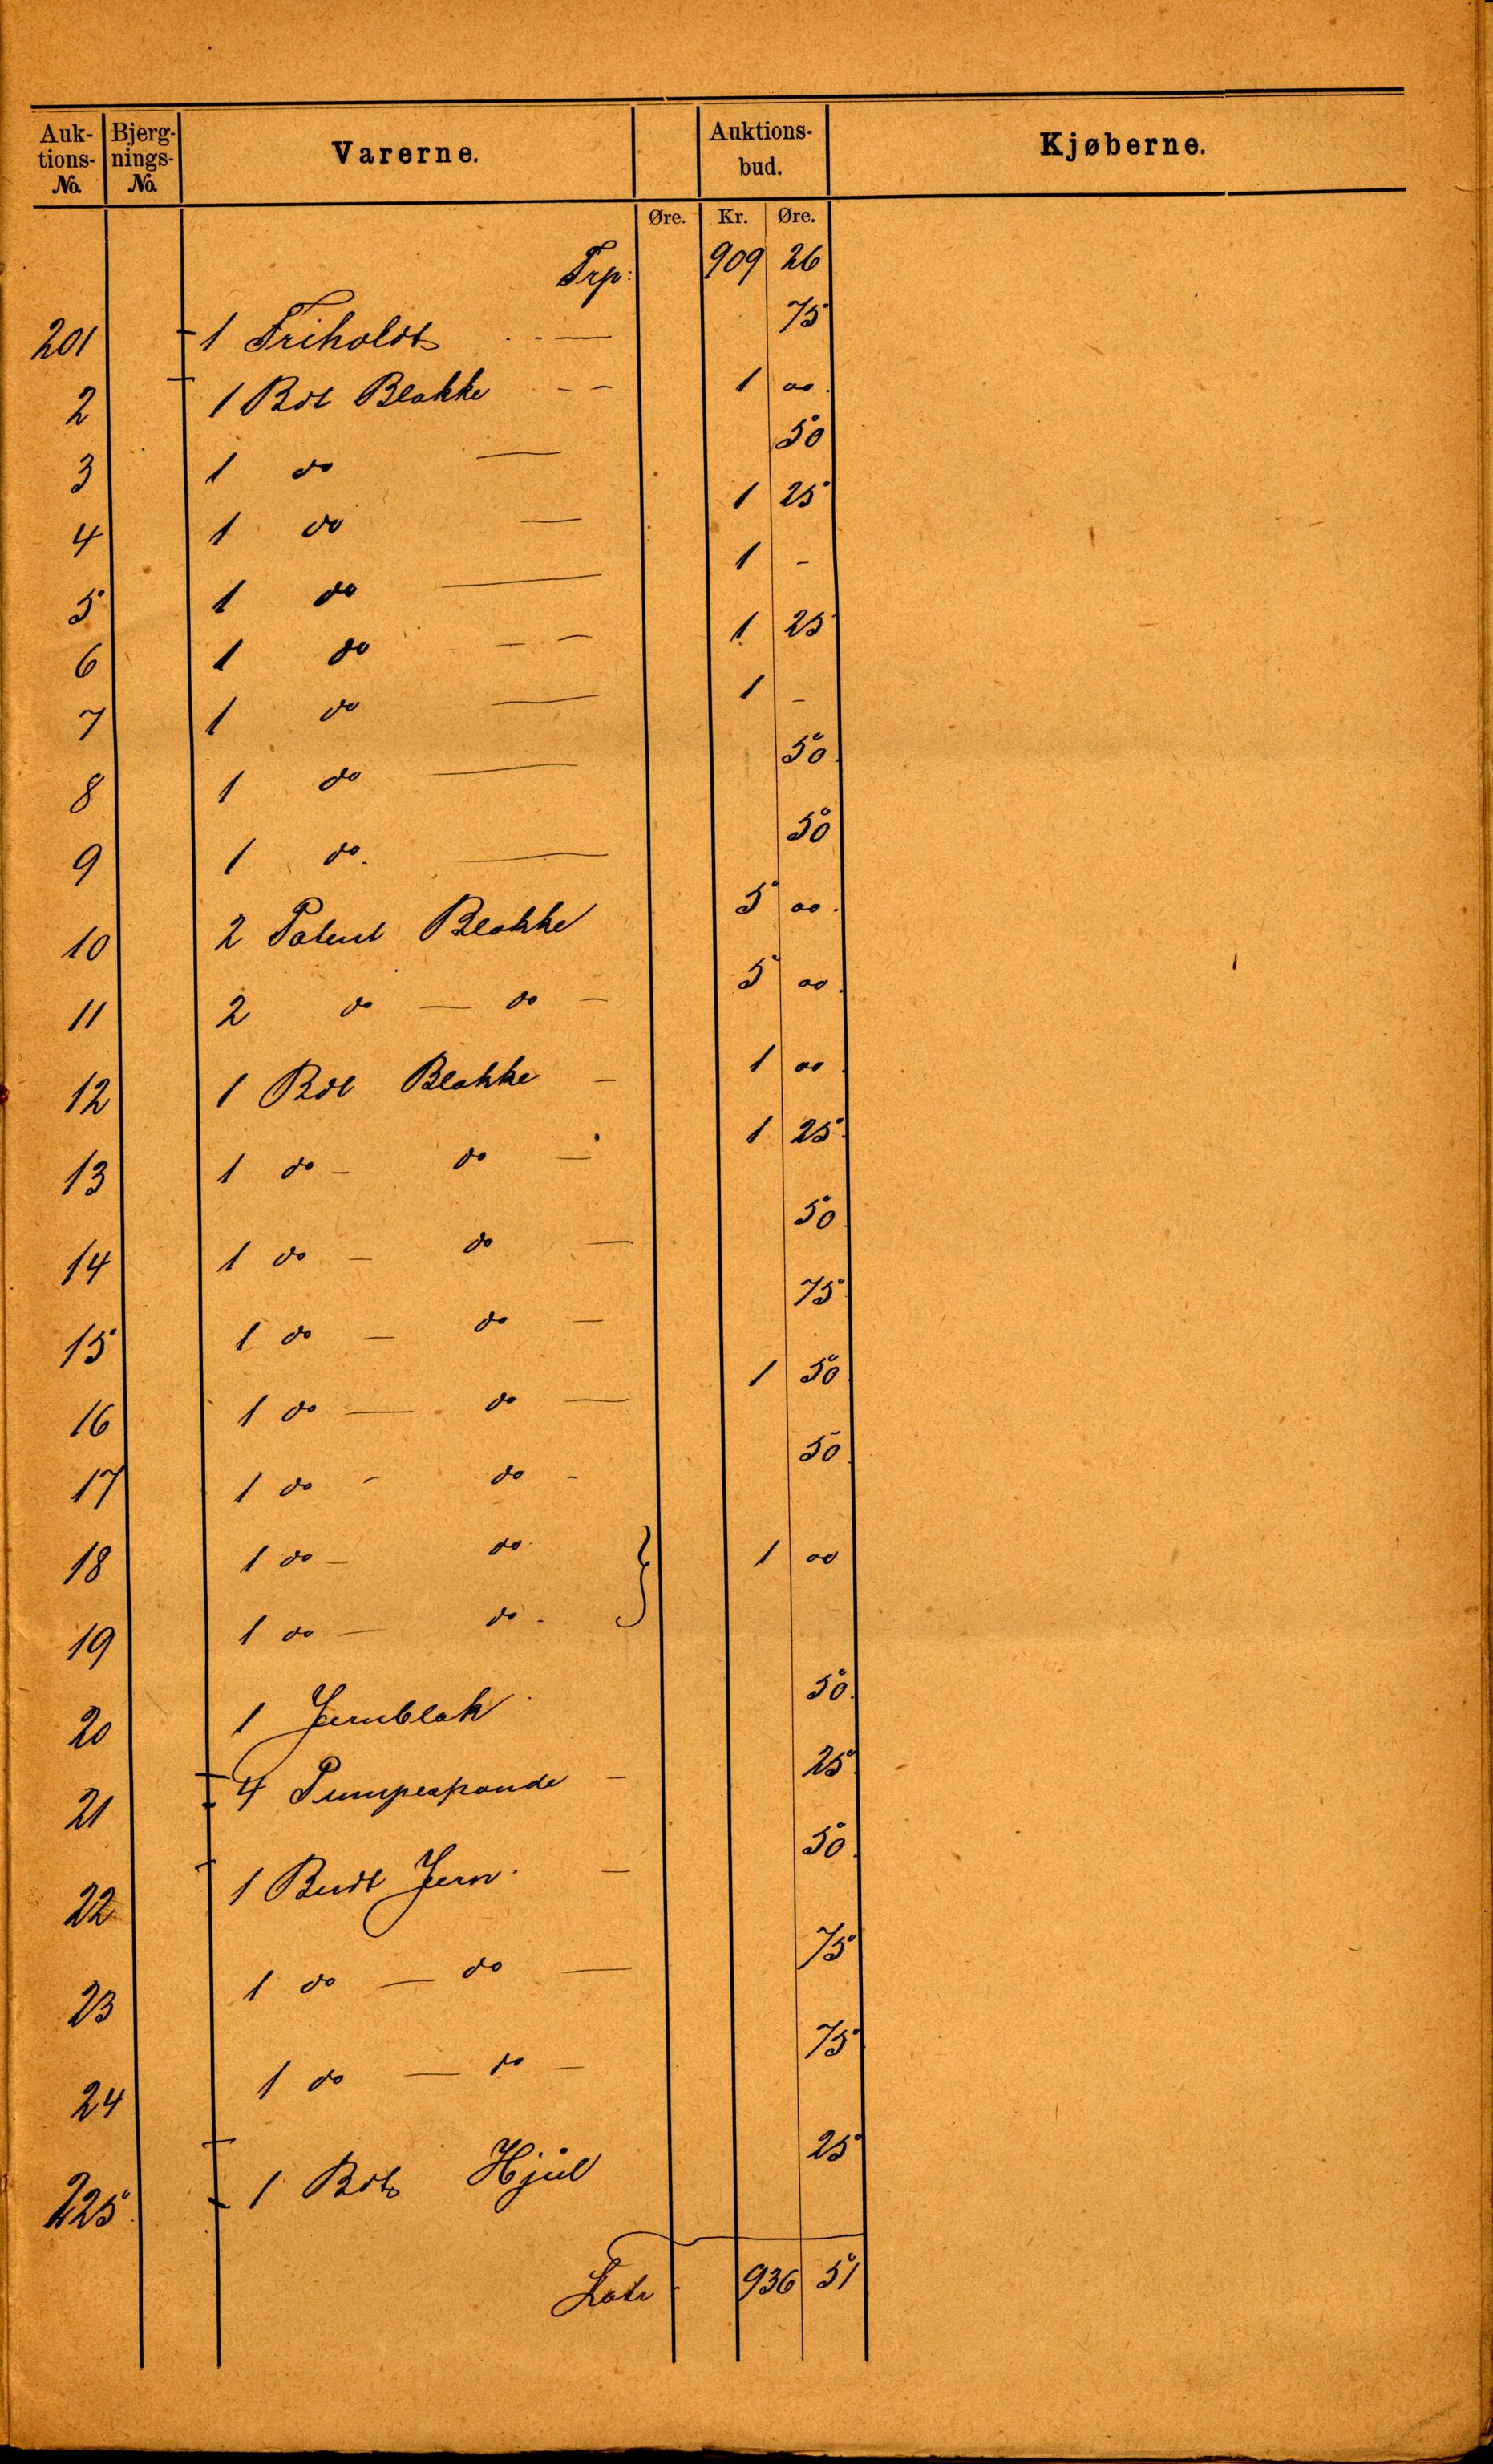 Auktions-No. Bjergnings-No. Varerne. Auktionsbud. Kjøberne.
Øre. Kr. Øre.
Trp: 909 26
201 1 Friholdt 75
2 1 Bdt Blokke 1 00
3 1 do 50
4 1 do 1 25
5 1 do 1 -
6 1 do 1 25
7 1 do 1 -
8 1 do 50
9 1 do. 50
10 2 Patent Blokke 5 00
11 2 do — do - 5 00
12 1 Bdt Blokke - 1 00
13 1 do - do - 1 25
14 1 do - do — 50
15 1 do - do - 75
16 1 do — do — 1 50
17 1 do - do - 50
18 1 do - do } 1 00
19 1 do - do.
20 1 Jernblok 50
21 4 Pumpespande - 25
22 1 Budt Jern. - 50
23 1 do — do — 75
24 1 do — do - 75
225 1 Bdt Hjul 25
Lat 936 51